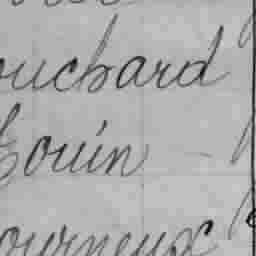 ouchard
Gouin
ourneux